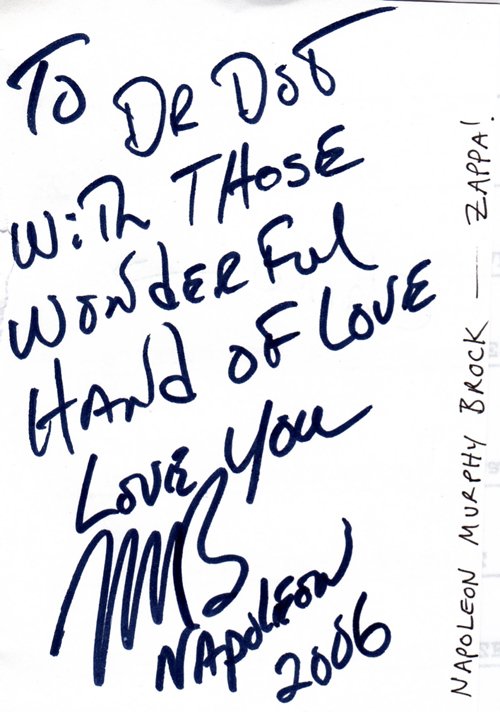 To DR DOT
WiTh THOSE
WONdERFul
HANd OF LOVE
LOVE YOU
MB
NAPOLEON
2006
NAPOLEON MURPHY BROCK — ZAPPA!